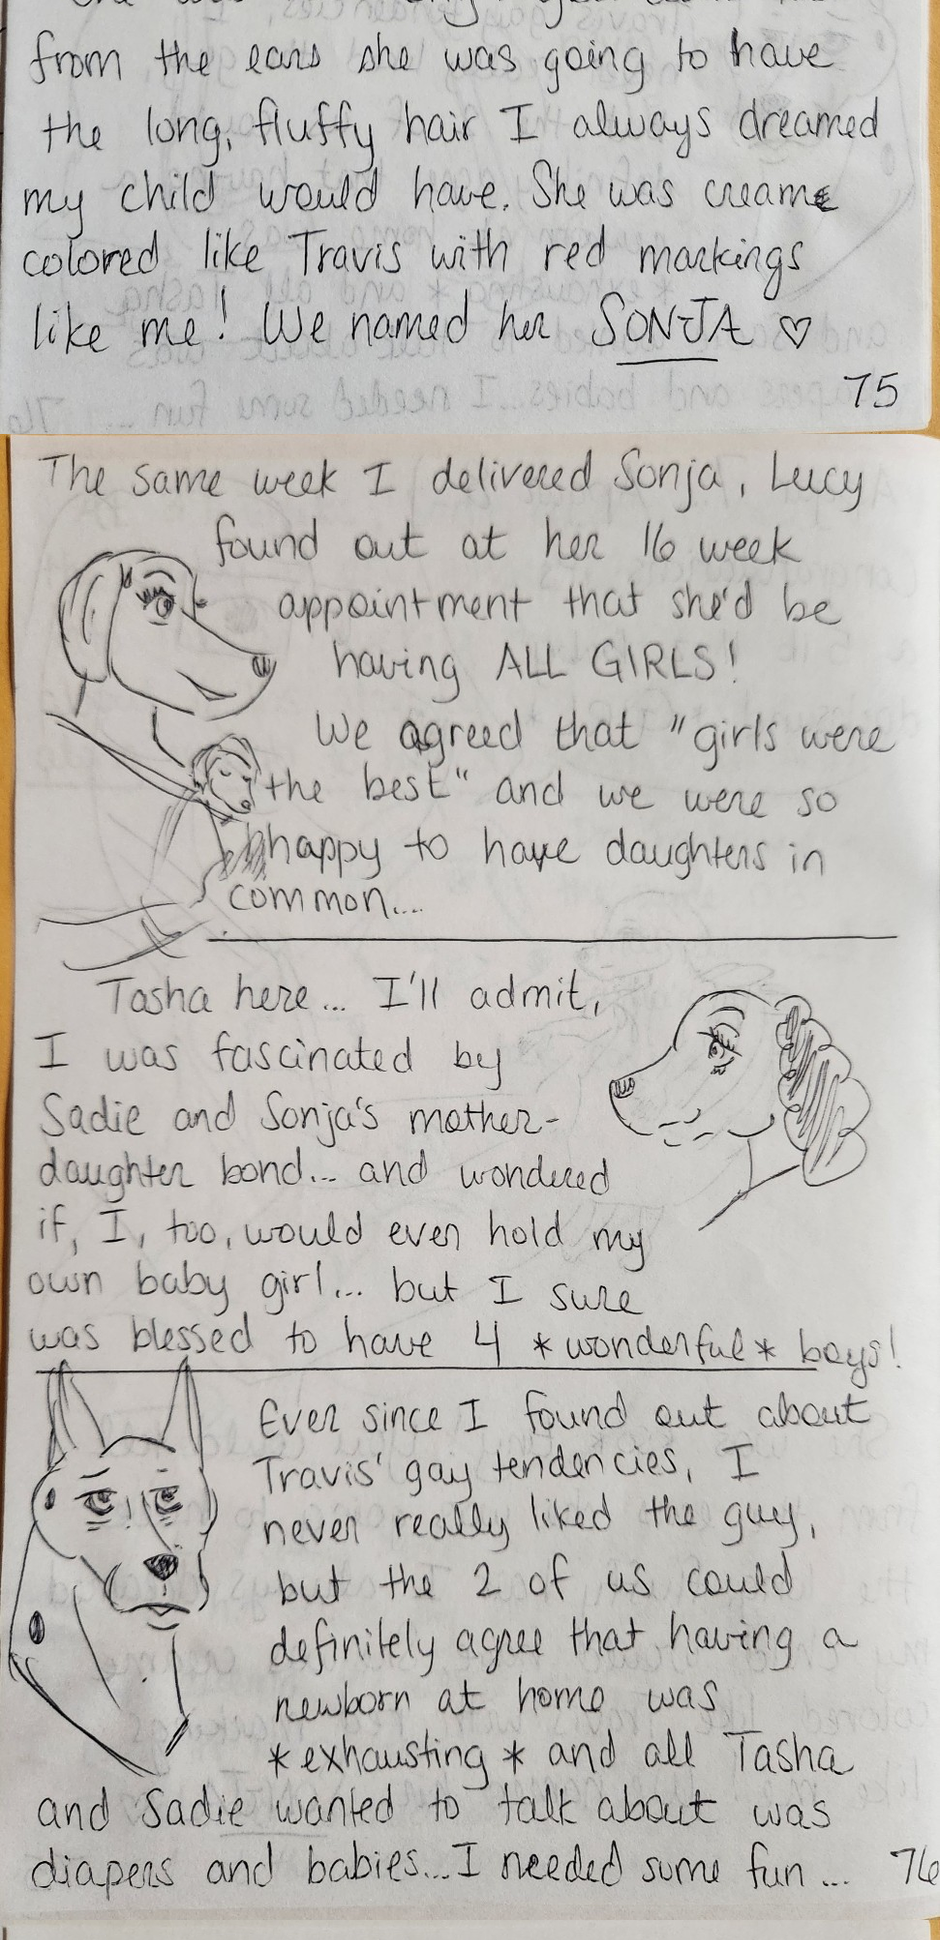 from the ears she was going to have
the long, fluffy hair I always dreamed
my child would have. She was creame
colored like Travis with red markings
like me! We named her SONJA ♡
75
The same week I delivered Sonja, Lucy
found out at her 16 week
appointment that she'd be
having ALL GIRLS!
We agreed that "girls were
the best" and we were so
happy to have daughters in
common....
Tasha here... I'll admit,
I was fascinated by
Sadie and Sonja's mother-
daughter bond... and wondered
if, I, too, would ever hold my
own baby girl... but I sure
was blessed to have 4 *wonderful* boys!
Ever since I found out about
Travis' gay tendencies, I
never really liked the guy,
but the 2 of us could
definitely agree that having a
newborn at home was
*exhausting* and all Tasha
and Sadie wanted to talk about was
diapers and babies...I needed some fun ...
76